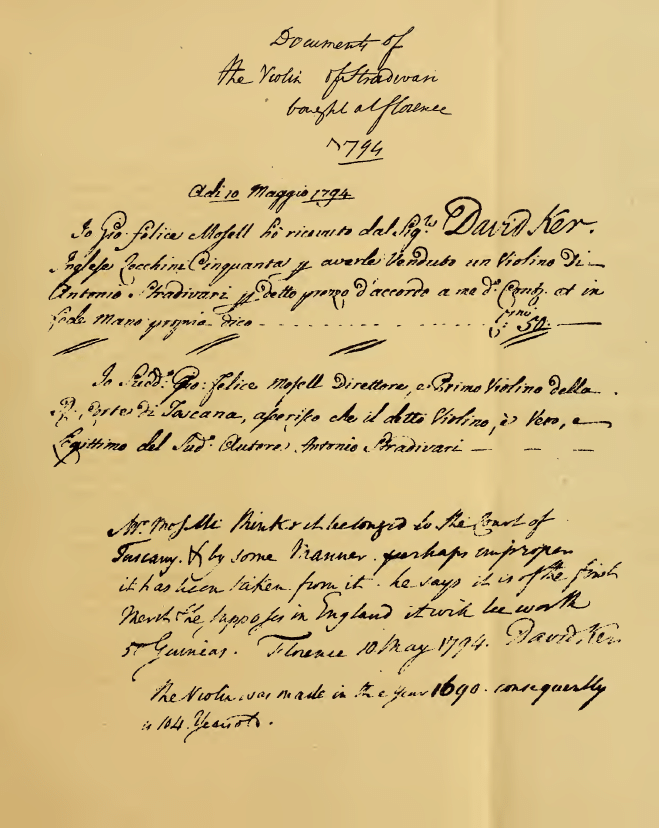 Documents of
the Violin of Stradivari
bought at Florence
1794
Adi 10 Maggio 1794
Io Gio. Felice Mosell ho ricevuto dal Sigre. David Ker.
Inglese Zecchini Cinquanta p averle Venduto un Violino Di
Antonio Stradivari p Detto prezzo d'accordo a me dº. Contj. et in
fede Mano propria dico - - - - - - - - - 50. —
Io Sudd.º Gio: Felice Mosell Direttore, e Primo Violino della
R. Corte di Toscana, aserisco che il detto Violino, è Vero, e
Legittimo del Sud.º Autore Antonio Stradivari — — —
Mr. Moselli thinks it belonged to the Court of
Tuscany. & by some Manner perhaps improper
it has been taken from it. he says it is of the first
Merit & he supposes in England it will be worth
Guineas. Florence 10 May 1794. David Ker.
The Violin was made in the year 1690. consequently
is 104 Years old.